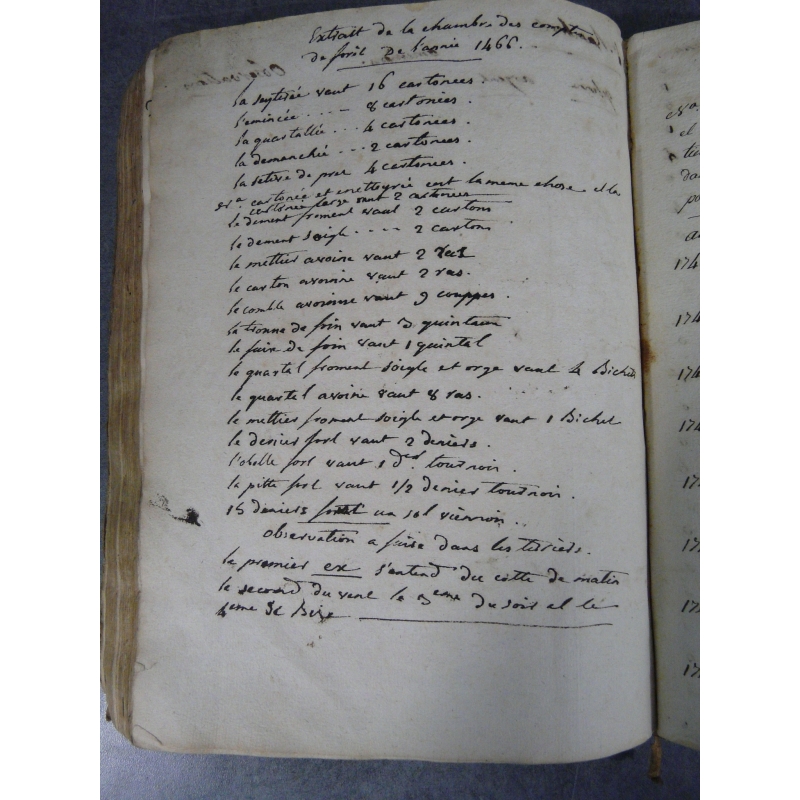 Extrait de la chambre des comptes
de foril De l'annie 1466.
la seytirée vaut 16 cartonees.
l'eminée .... 8 cartonées.
la quartallée ... 4 cartonees.
la demanchée ... 2 cartonees.
la seteve de prez 4 cartonees.
cartonée et mettoyrée cest la meme chose et la
cartonée large vaut 2 cartonees
le dement froment vaut 2 cartons
le dement soigle .... 2 cartons
le mettier avoine vaut 2 ras
le carton avoinne vaut 2 ras.
le comble avoinne vaut 9 couppes.
la tronne de foin vaut 3 quintaux
le faix de foin vaut 1 quintal
le quartel froment soigle et orge vaut 4 Bichets
le quartel avoine vaut 8 ras.
le mettier froment soigle et orge vaut 1 Bichet
le denier fort vaut 2 deniers.
l'obolle fort vaut 1 der tournoir.
la pitte fort vaut 1/2 denier tournoir.
15 deniers font un sol viennoir.
observation a faire dans les terriers.
le premier ex s'entend du cotte de matin
le second du vent le 3eme du soir et le
4eme de Bize
174
174
174
174